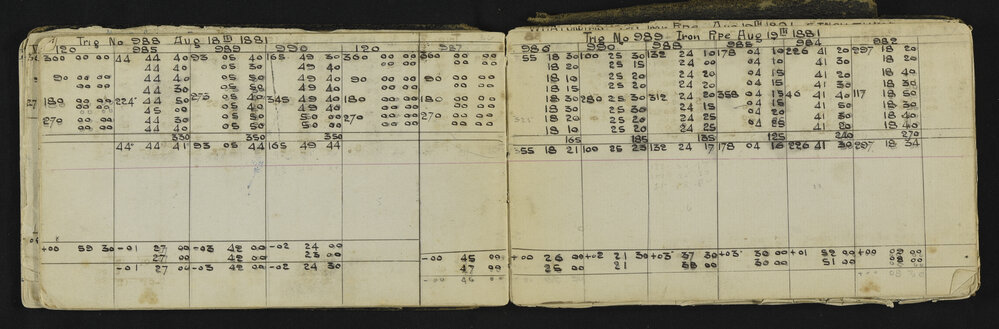 Trig No 988 Aug 18TH 1881
120 985 989 990 120 987
00 00 44 44 40 93 05 40 165 49 30 360 00 00 00 00
00 00 44 40 05 30 49 40 00 00 00 00
90 00 00 44 40 05 50 49 40 90 00 00 90 00 00
00 00 44 30 05 50 49 40 00 00 00 00
180 00 00 224 44 50 273 05 40 345 49 40 180 00 00 180 00 00
00 00 45 00 05 40 49 40 00 00 00 00
270 00 00 44 30 05 50 50 00 270 00 00 270 00 00
00 00 44 40 05 50 50 00 00 00 00 00
330 350 350
44 44 41 93 05 44 165 49 44
+00 59 30 -01 27 00 -03 42 00 -02 24 00
27 00 42 00 25 00
-01 27 00 -03 42 00 -02 24 30
-00 45 00
47 00
-00 46 00
Trig No 989 Iron Pipe Aug 19TH 1881
986 990 988 985 984 982
55 18 30 100 25 30 132 24 20 178 04 10 226 41 20 297 18 20
18 20 25 15 24 00 04 41 30 18 20
18 10 25 20 24 10 04 15 41 20 18 40
18 15 25 20 24 20 04 15 41 30 18 30
18 30 280 25 30 312 24 20 358 04 15 46 41 40 117 18 50
18 30 25 30 24 15 04 15 41 50 18 30
18 20 25 20 24 25 04 20 41 30 18 40
18 10 25 20 24 25 04 41 20 18 40
165 185 135 125 240 270
55 18 21 100 25 23 132 24 17 178 04 16 226 41 30 297 18 34
+00 26 00 +02 21 30 +03 37 30 +03 30 00 +01 52 00 +00
25 00 21 30 00 51 00